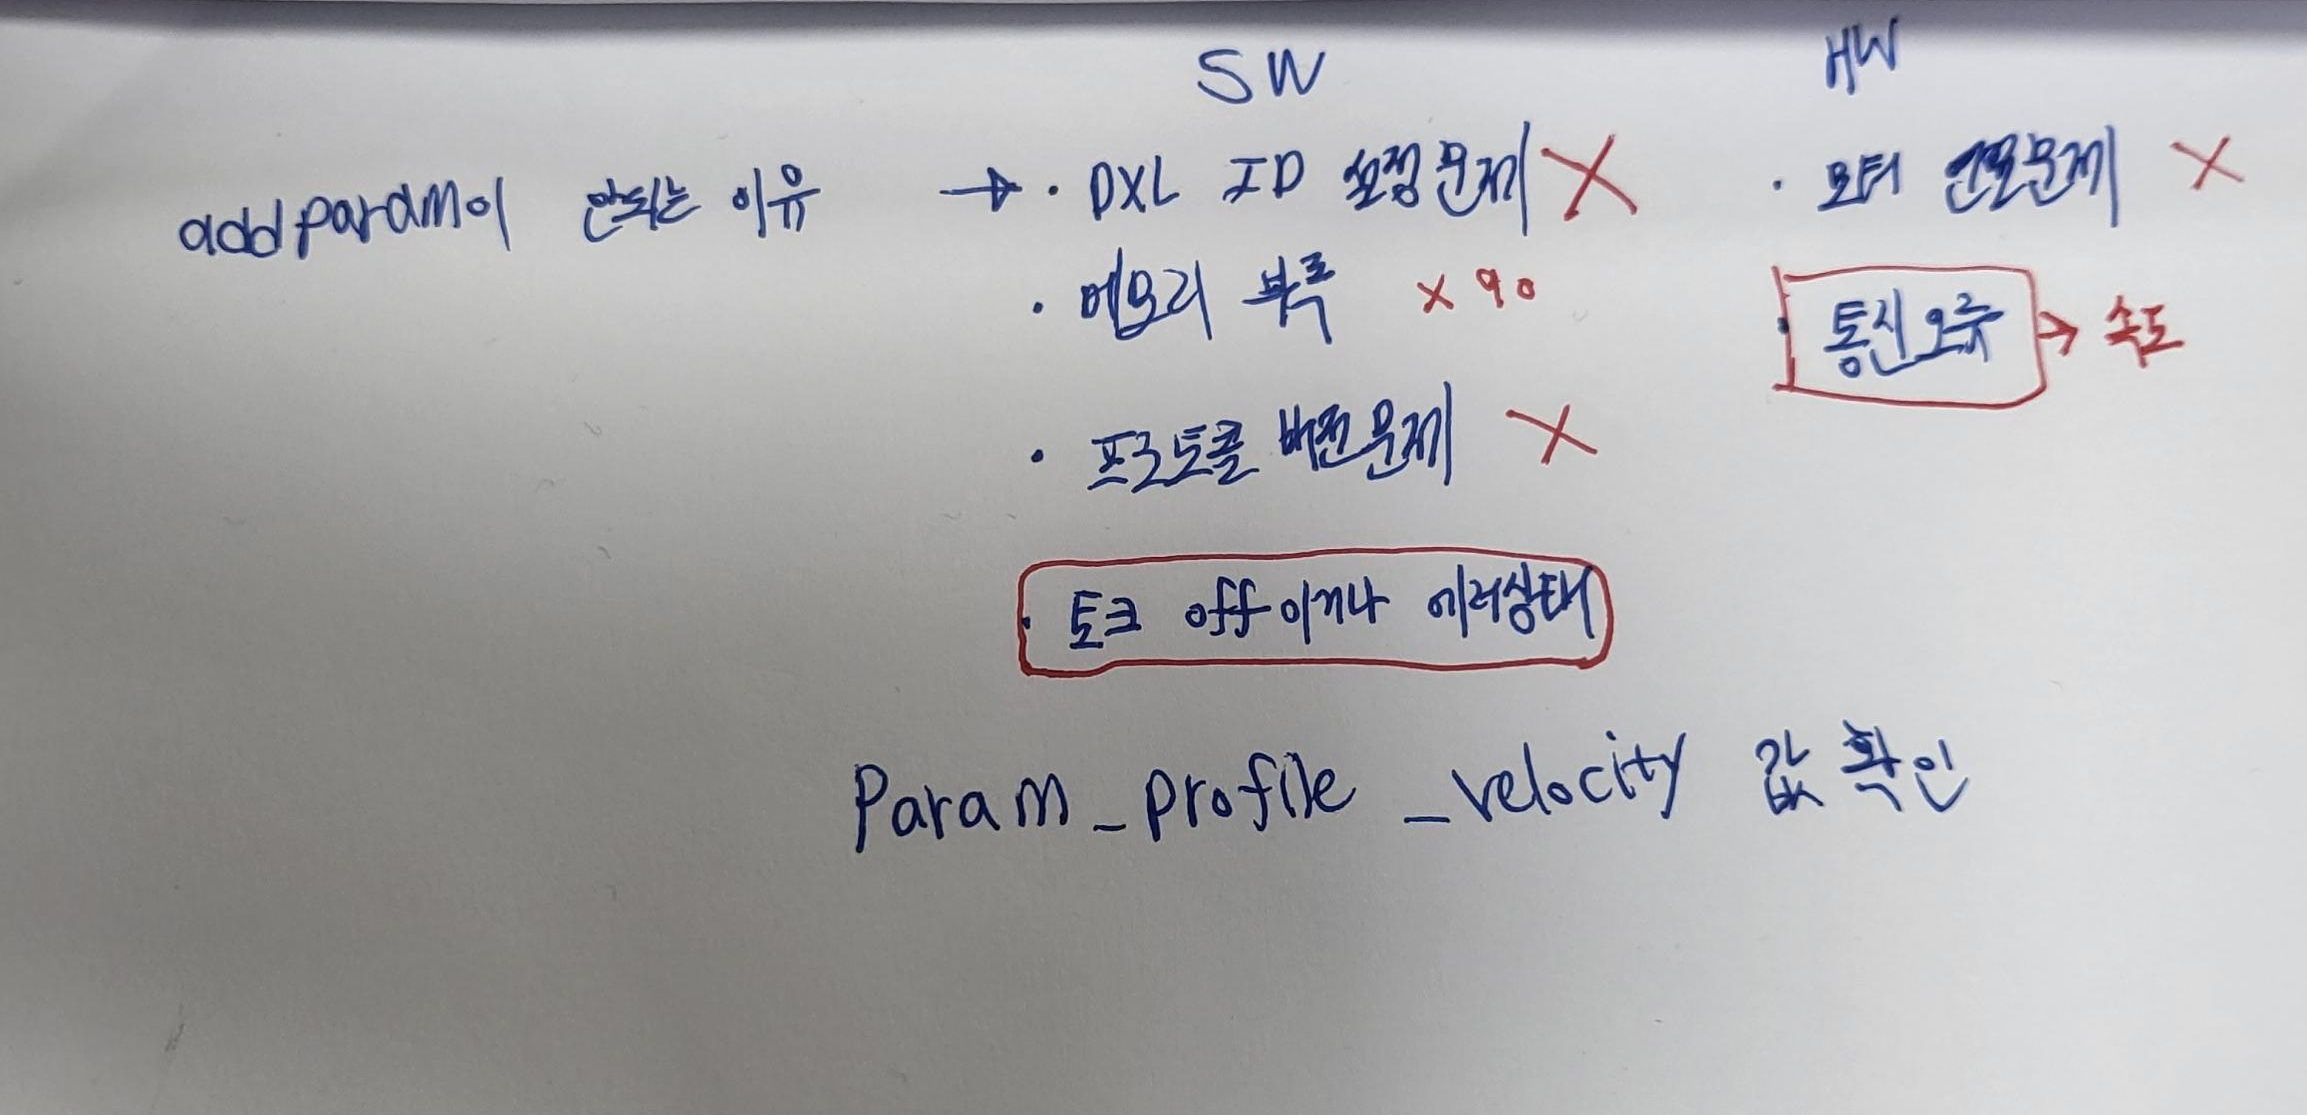 SW HW
addparam이 안되는 이유 → · DXL ID 설정문제 X · 모터 연결문제 X
· 메모리 부족 x 90 · 통신오류 → 속도
· 프로토콜 버전문제 X
· 토크 off이거나 에러상태
Param_profile_velocity 값 확인